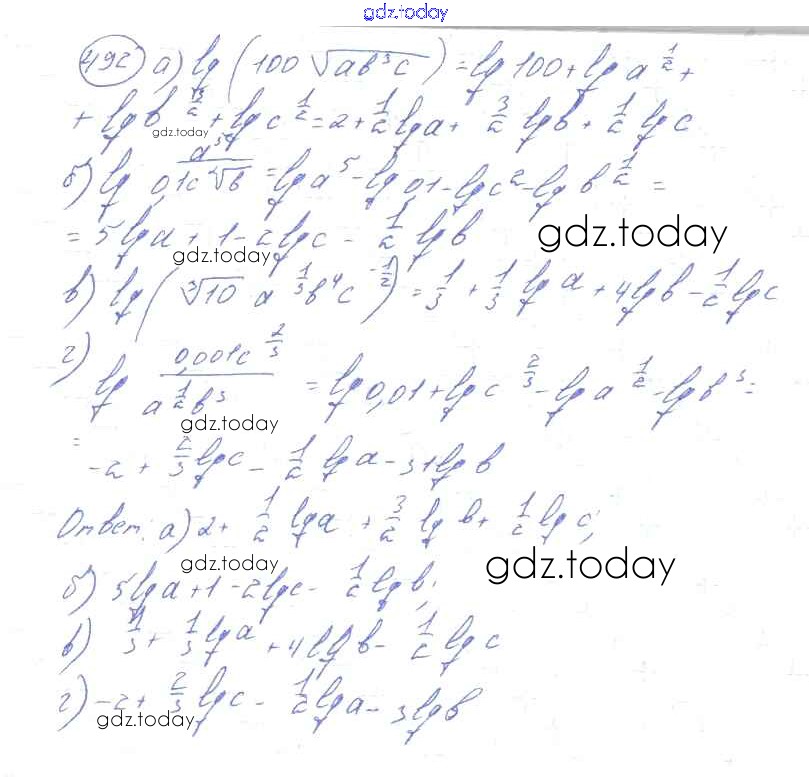 gdz.today
492 а) lg (100 √ab³c) = lg 100 + lg a^(1/2) +
+ lg b^(3/2) + lg c^(1/2) = 2 + 1/2 lg a + 3/2 lg b + 1/2 lg c
gdz.today
б) lg a⁵/(0,1c²√b) = lg a⁵ - lg 0,1 - lg c² - lg b^(1/2) =
= 5 lg a + 1 - 2 lg c - 1/2 lg b
gdz.today
gdz.today
в) lg (∛10 a^(1/3) b⁴ c^(-1/2)) = 1/3 + 1/3 lg a + 4 lg b - 1/2 lg c
г) lg 0,001c^(2/3)/(a^(1/2) b³) = lg 0,01 + lg c^(2/3) - lg a^(1/2) - lg b³ =
gdz.today
= -2 + 2/3 lg c - 1/2 lg a - 3 lg b
Ответ: а) 2 + 1/2 lg a + 3/2 lg b + 1/2 lg c;
gdz.today
gdz.today
б) 5 lg a + 1 - 2 lg c - 1/2 lg b;
в) 1/3 + 1/3 lg a + 4 lg b - 1/2 lg c
г) -2 + 2/3 lg c - 1/2 lg a - 3 lg b
gdz.today